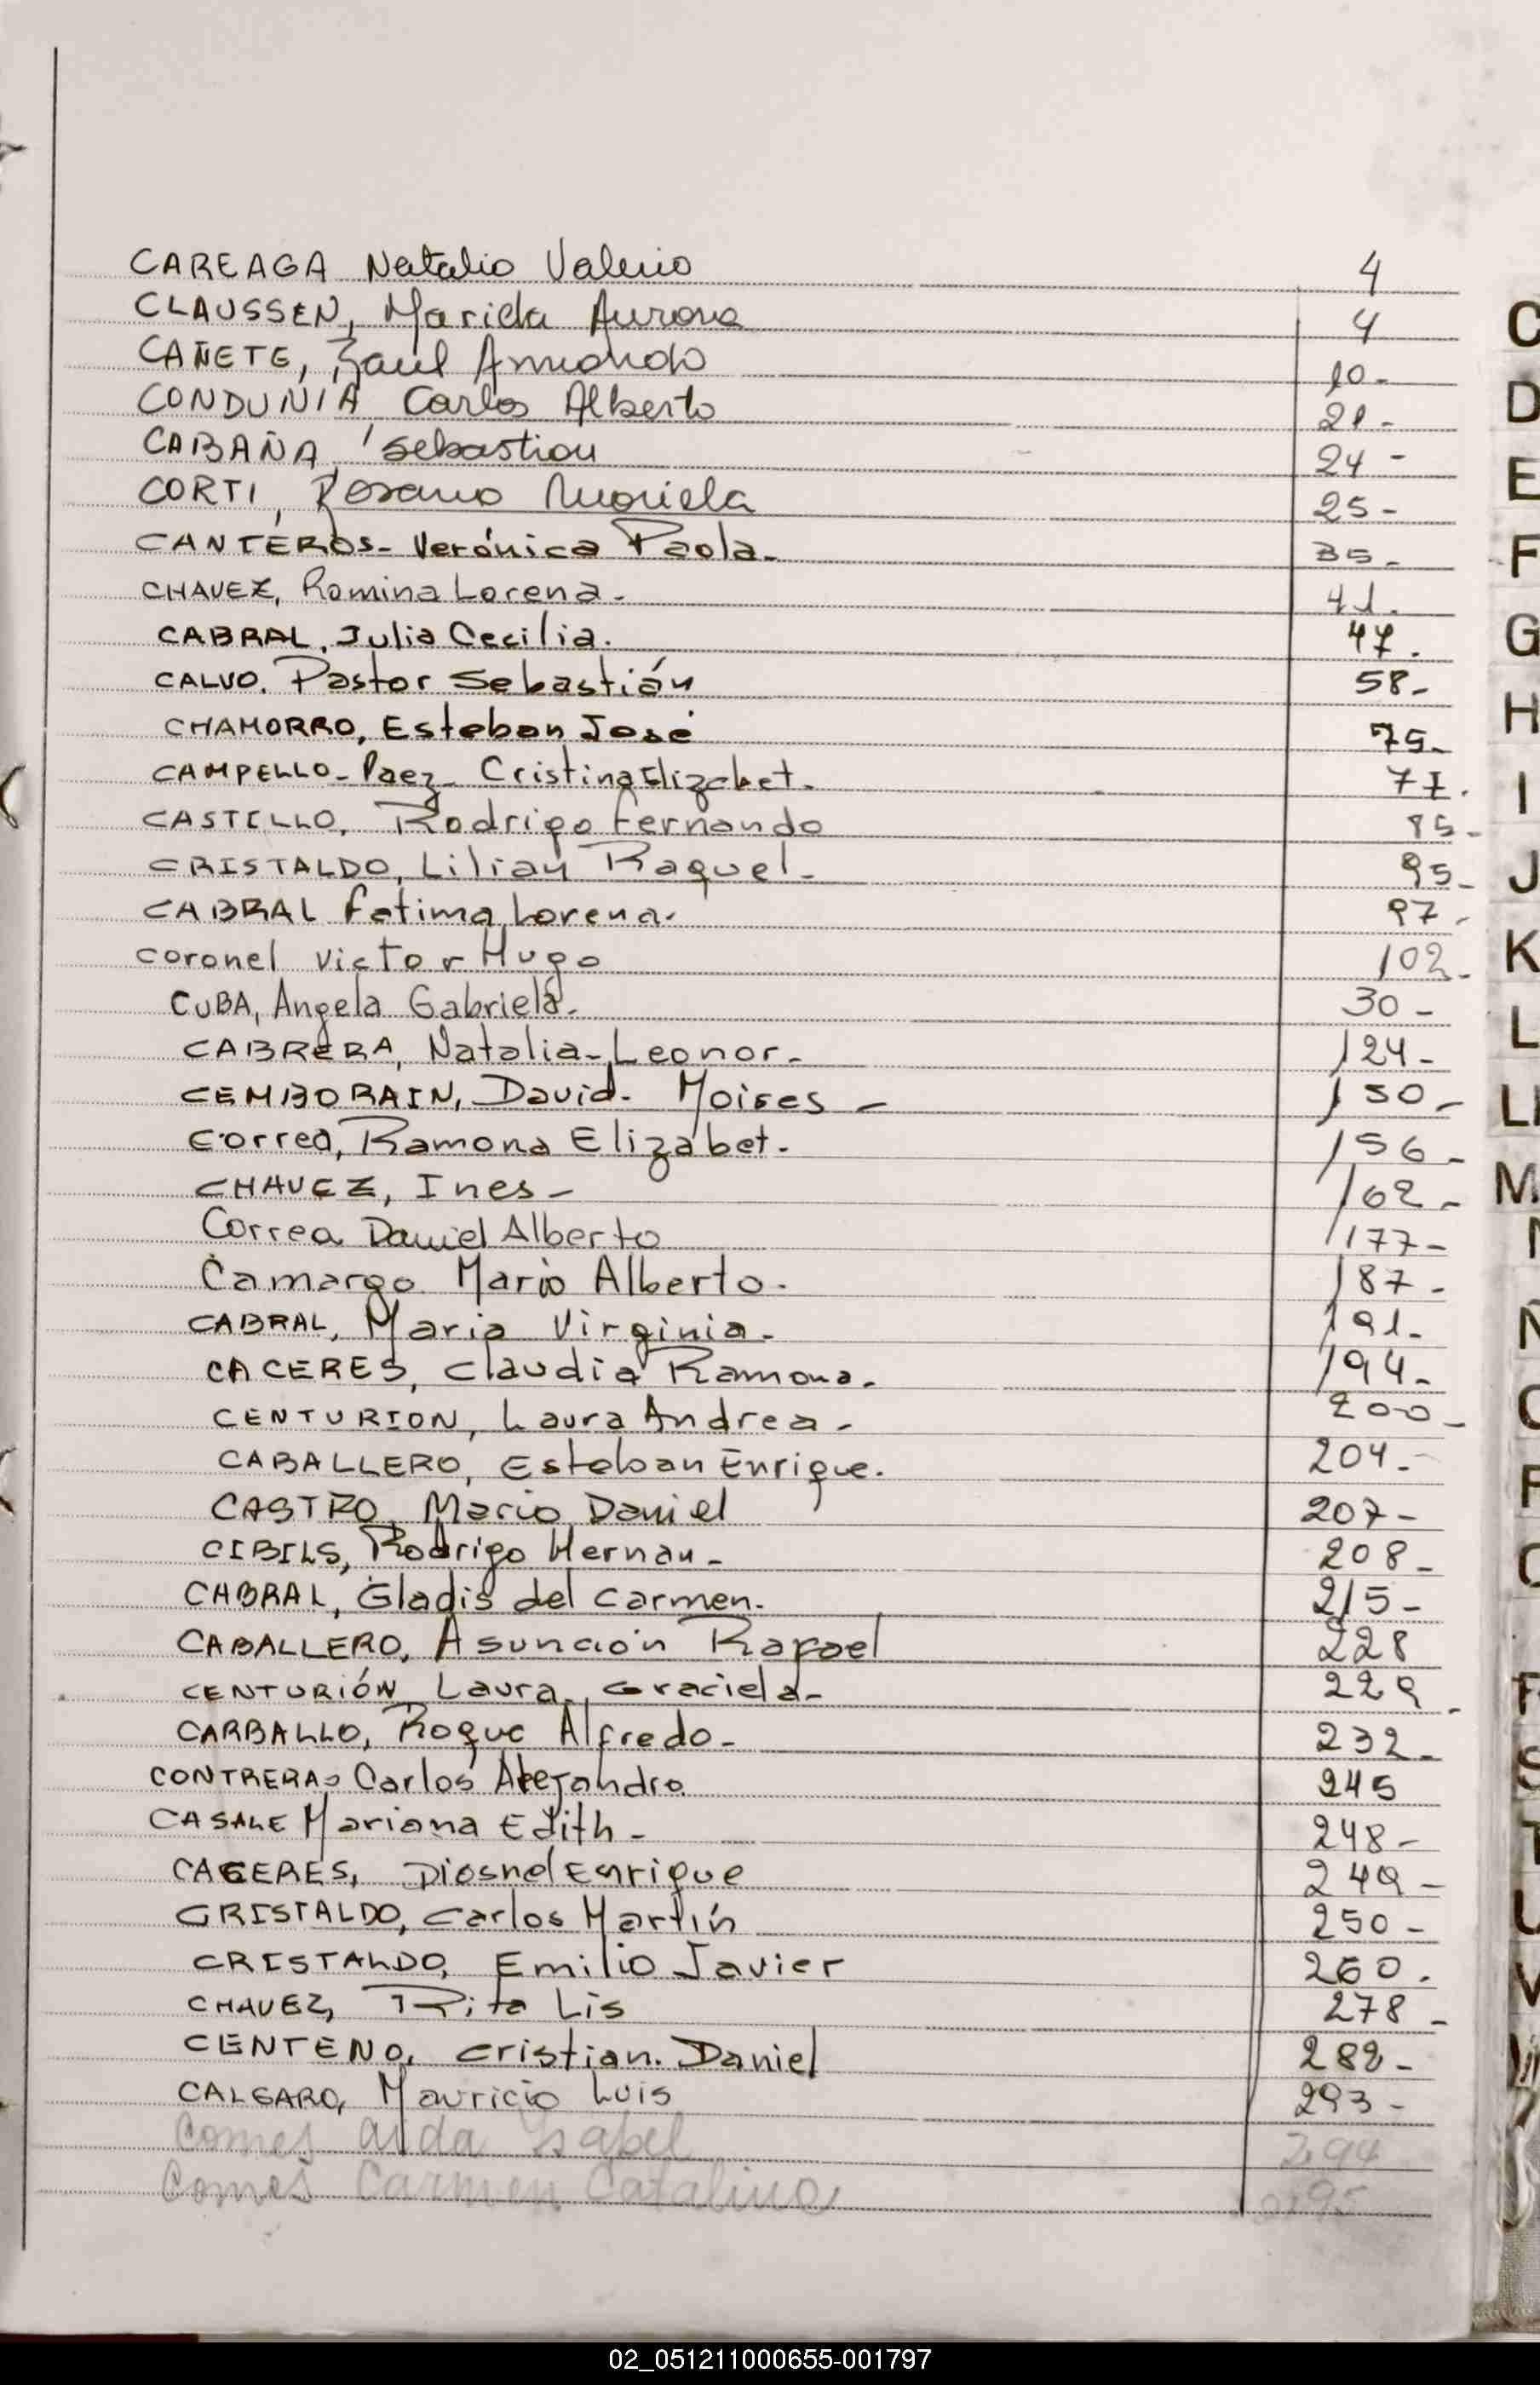 CAREAGA Natalio Valerio 4
CLAUSSEN, Mariela Aurora 4
CAÑETE, Raul Armando 10-
CONDUNIA Carlos Alberto 21-
CABAÑA, Sebastian 24-
CORTI, Rosana Mariela 25-
CANTEROS- Verónica Paola- 35-
CHAVEZ, Romina Lorena- 41.
CABRAL, Julia Cecilia. 47.
CALVO. Pastor Sebastián 58-
CHAMORRO, Esteban José 75-
CAMPELLO- Paez- Cristina Elizabet. 77.
CASTILLO, Rodrigo Fernando 85-
CRISTALDO, Lilian Raquel- 95-
CABRAL Fatima Lorena. 97-
Coronel Victor Hugo 102-
CUBA, Angela Gabriela. 30-
CABRERA, Natalia-Leonor- 124-
CEMBORAIN, David- Moises- 150-
Correa, Ramona Elizabet. 156-
CHAVEZ, Ines- 162-
Correa Daniel Alberto 177-
Camargo Mario Alberto. 187-
CABRAL, Maria Virginia- 191-
CACERES, Claudia Ramona. 194-
CENTURION, Laura Andrea- 200-
CABALLERO, Esteban Enrique. 204-
CASTRO, Mario Daniel 207-
CIBILS, Rodrigo Hernan- 208-
CABRAL, Gladis del Carmen. 215-
CABALLERO, Asunción Rafael 228
CENTURIÓN Laura, Graciela- 229-
CARBALLO, Roque Alfredo- 232-
CONTRERAS Carlos Alejandro. 245
CASALE Mariana Edith- 248-
CACERES, Diosnel Enrique 249-
CRISTALDO, Carlos Martín 250-
CRISTALDO, Emilio Javier 260.
CHAVEZ, Rita Lis 278-
CENTENO, Cristian. Daniel 282-
CALGARO, Mauricio Luis 293-
Comes Aida Isabel 294
Comes Carmen Catalina 295
C
D
E
F
G
H
I
J
K
L
Ll
M
N
Ñ
O
P
Q
R
S
T
U
V
02_051211000655-001797